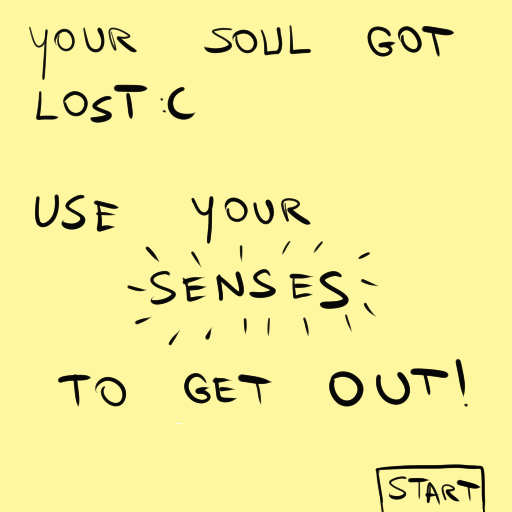 YOUR SOUL GOT
LOST :C
USE YOUR
SENSES
TO GET OUT!
START